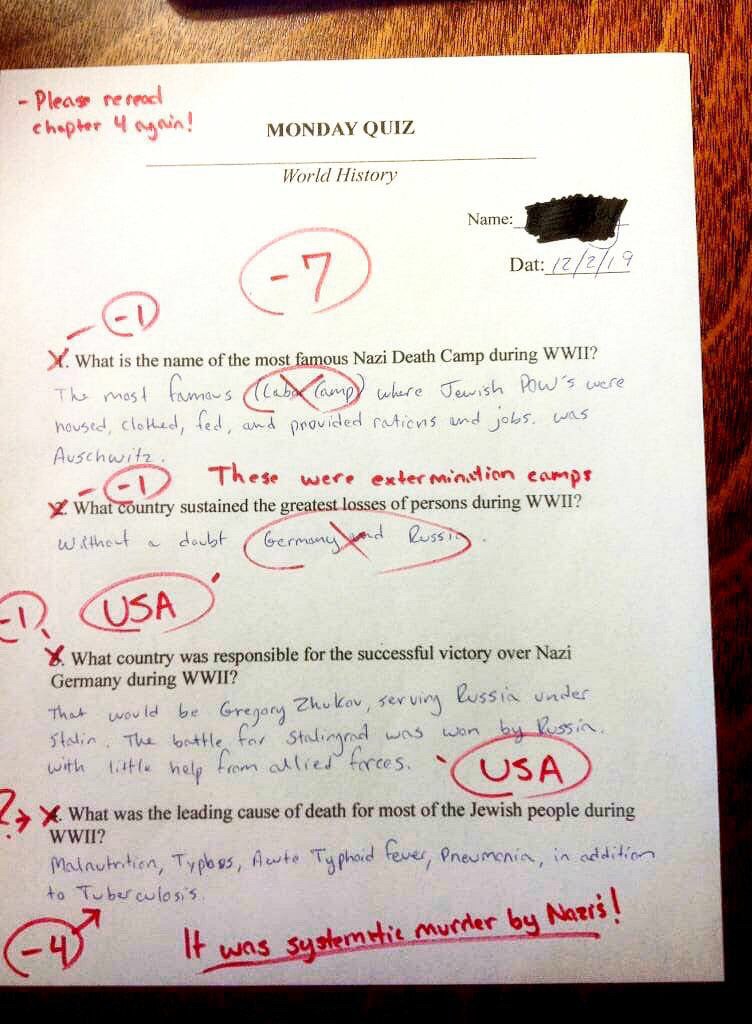 - Please reread
chapter 4 again!
MONDAY QUIZ
World History
Name:
Dat: 12/2/19
-7
-1
1. What is the name of the most famous Nazi Death Camp during WWII?
The most famous (Labor Camp) where Jewish POW's were
housed, clothed, fed, and provided rations and jobs. was
Auschwitz.
-1 These were extermination camps
2. What country sustained the greatest losses of persons during WWII?
Without a doubt Germany and Russia.
-1 USA
3. What country was responsible for the successful victory over Nazi
Germany during WWII?
That would be Gregory Zhukov, serving Russia under
Stalin. The battle for Stalingrad was won by Russia.
with little help from allied forces. USA
? 4. What was the leading cause of death for most of the Jewish people during
WWII?
Malnutrition, Typhos, Acute Typhoid fever, Pneumonia, in addition
to Tuberculosis.
-4 It was systemetic murder by Nazi's!